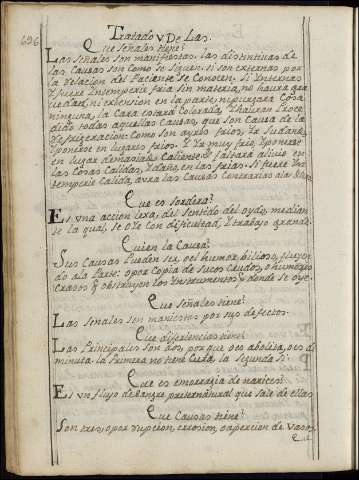 696
Tratado V De Las.
Que Señales tiene?
Las Señales son manifiestas. las distintivas de
las Causas son Como se siguen. si son externas por
la Relacion del Paciente se Conocen. Si Ynternas
y fuere Intemperie fria sin materia, no haura gra
uedad, ni extension en la parte, ni purgara Cosa
ninguna, la Cara estara Colorada, y hauran Prece
dido todas aquellas Causas, que son Causa de la
Refrigeracion: Como son ayres frios, Yr Sudando,
Ponerse en lugares frios. Y Yr muy frio, Y ponerse
en lugar demasiado Caliente. Y faltará alivio en
las Cosas Calidas, Y daño, en las frias. Si fuere Yn
temperie Calida, avra las Causas Contrarias a la
Que es sordera?
Es Una accion lexa, del Sentido del oydo, median
te la qual, se oye con dificultad, Y trabajo grande.
Quien la Causa?
Sus Causas Pueden ser, o el humor bilioso, fluyen
do a la Parte: o por Copia de sucos Crudos, o humores
Crasos q obstruyen los Ynstrumentos, donde se oye.
Que señales tiene?
Las Señales son manifiestas por sus defectos.
Que diferiencias tiene?
Las Principales son dos, por que o es abolita, o es di
minuta. la Primera no tiene Cura, la Segunda Si.
Que es emorragia de narices?
Es Un flujo de sangre preternatural que sale de ellas
Que Causas tiene?
Son tres, o por rupcion, errosion, o apercion de Vasos.
Que